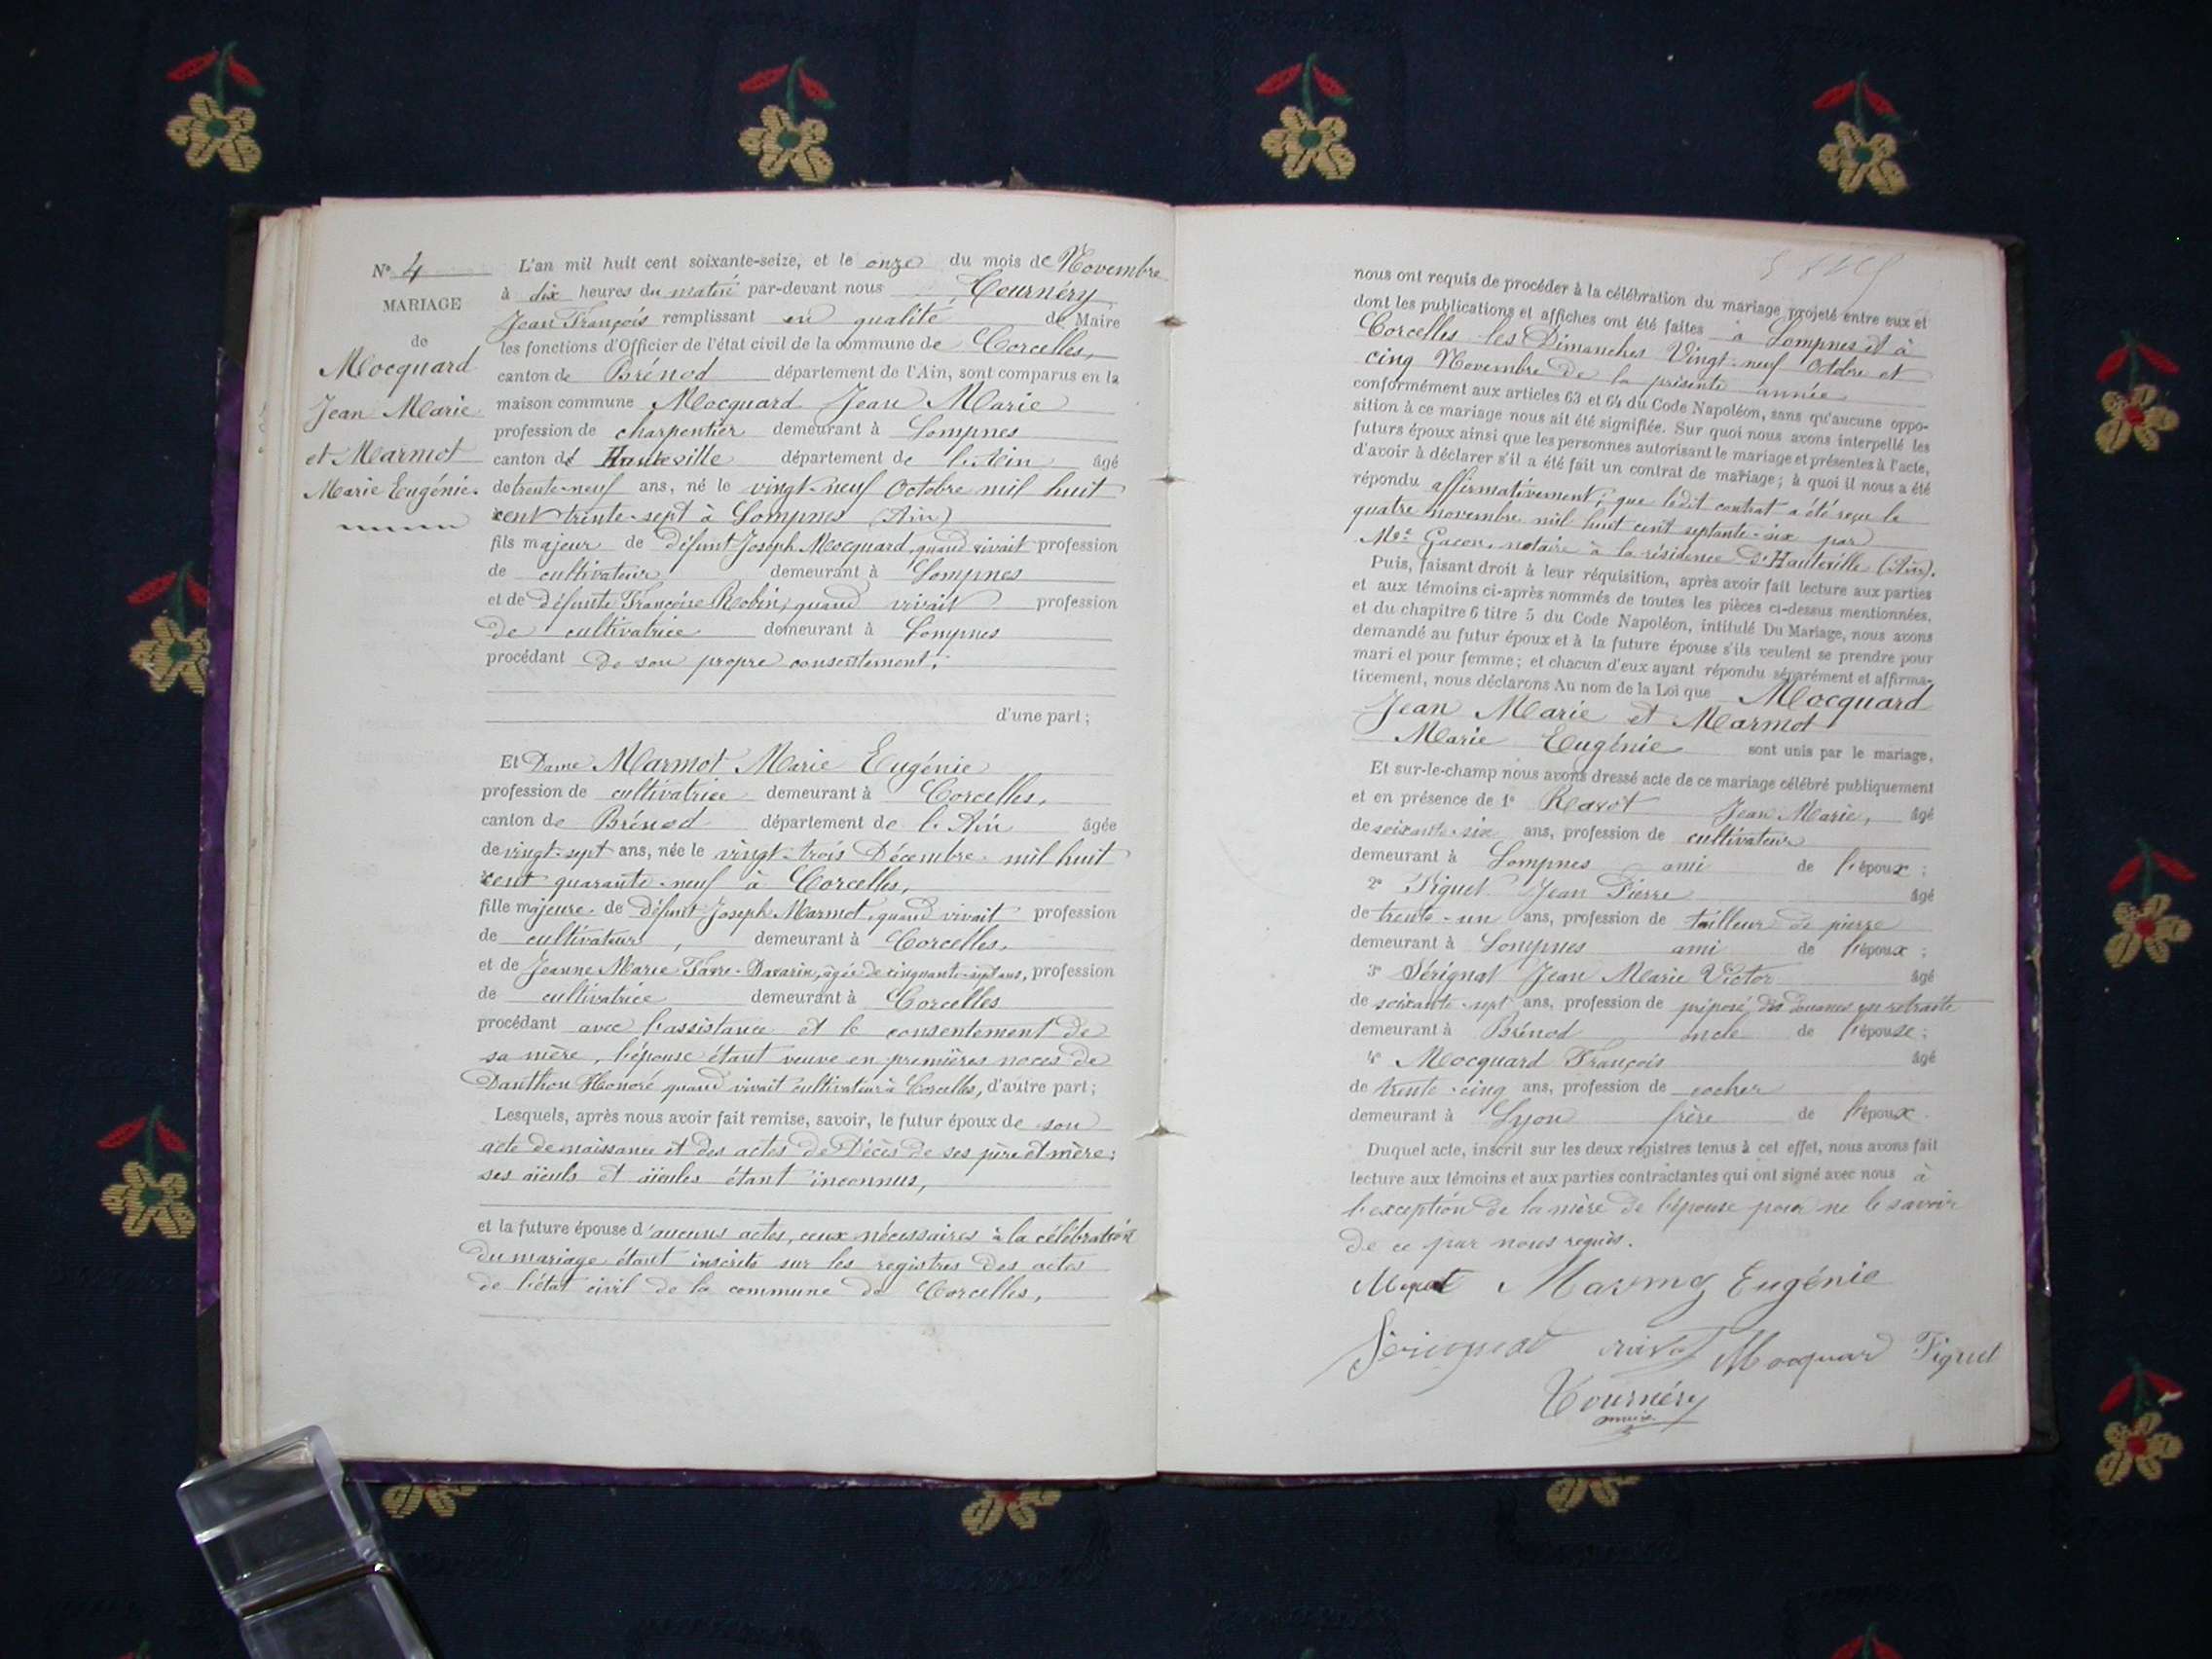 N° 4
MARIAGE
de
Mocquard
Jean Marie
et Marmot
Marie Eugénie.
L'an mil huit cent soixante-seize, et le onze du mois de Novembre
à dix heures du matin par-devant nous Tournéry
Jean François remplissant en qualité de Maire
les fonctions d'Officier de l'état civil de la commune de Corcelles,
canton de Brénod département de l'Ain, sont comparus en la
maison commune Mocquard Jean Marie
profession de charpentier demeurant à Lompnes
canton de Hauteville département de l'Ain âgé
de trente-neuf ans, né le vingt-neuf Octobre mil huit
cent trente-sept à Lompnes (Ain)
fils majeur de défunt Joseph Mocquard, quand vivait profession
de cultivateur demeurant à Lompnes
et de défunte Françoise Robin, quand vivait profession
de cultivatrice demeurant à Lompnes
procédant de son propre consentement;
d'une part;
Et Dame Marmot Marie Eugénie
profession de cultivatrice demeurant à Corcelles,
canton de Brénod département de l'Ain âgée
de vingt-sept ans, née le vingt-trois Décembre mil huit
cent quarante-neuf à Corcelles,
fille majeure de défunt Joseph Marmot, quand vivait profession
de cultivateur, demeurant à Corcelles,
et de Jeanne Marie Favre-Davarin, âgée de cinquante-sept ans, profession
de cultivatrice demeurant à Corcelles
procédant avec l'assistance et le consentement de
sa mère, l'épouse étant veuve en premières noces de
Danthon Honoré quand vivait cultivateur à Corcelles, d'autre part;
Lesquels, après nous avoir fait remise, savoir, le futur époux de son
acte de naissance et des actes de Décès de ses père et mère;
ses aïeuls et aïeules étant inconnus,
et la future épouse d'aucuns actes, ceux nécessaires à la célébration
du mariage étant inscrits sur les registres des actes
de l'état civil de la commune de Corcelles,
nous ont requis de procéder à la célébration du mariage projeté entre eux et
dont les publications et affiches ont été faites à Lompnes et à
Corcelles les Dimanches Vingt-neuf Octobre et
cinq Novembre de la présente année
conformément aux articles 63 et 64 du Code Napoléon, sans qu'aucune oppo-
sition à ce mariage nous ait été signifiée. Sur quoi nous avons interpellé les
futurs époux ainsi que les personnes autorisant le mariage et présentes à l'acte,
d'avoir à déclarer s'il a été fait un contrat de mariage; à quoi il nous a été
répondu affirmativement; que ledit contrat a été reçu le
quatre novembre mil huit cent septante-six par
Me Gacon, notaire à la résidence d'Hauteville (Ain).
Puis, faisant droit à leur réquisition, après avoir fait lecture aux parties
et aux témoins ci-après nommés de toutes les pièces ci-dessus mentionnées,
et du chapitre 6 titre 5 du Code Napoléon, intitulé Du Mariage, nous avons
demandé au futur époux et à la future épouse s'ils veulent se prendre pour
mari et pour femme; et chacun d'eux ayant répondu séparément et affirma-
tivement, nous déclarons Au nom de la Loi que Mocquard
Jean Marie et Marmot
Marie Eugénie sont unis par le mariage.
Et sur-le-champ nous avons dressé acte de ce mariage célébré publiquement
et en présence de 1° Ravot Jean Marie, âgé
de soixante-six ans, profession de cultivateur
demeurant à Lompnes ami de l'époux;
2° Piguet Jean Pierre âgé
de trente-un ans, profession de tailleur de pierre
demeurant à Lompnes ami de l'époux;
3° Sérignat Jean Marie Victor âgé
de soixante-sept ans, profession de préposé des douanes en retraite
demeurant à Brénod oncle de l'épouse;
4° Mocquard François âgé
de trente-cinq ans, profession de cocher
demeurant à Lyon frère de l'époux.
Duquel acte, inscrit sur les deux registres tenus à cet effet, nous avons fait
lecture aux témoins et aux parties contractantes qui ont signé avec nous à
l'exception de la mère de l'épouse pour ne le savoir
de ce par nous requis.
Eugénie
Mocquard Piguet
Tournéry
maire